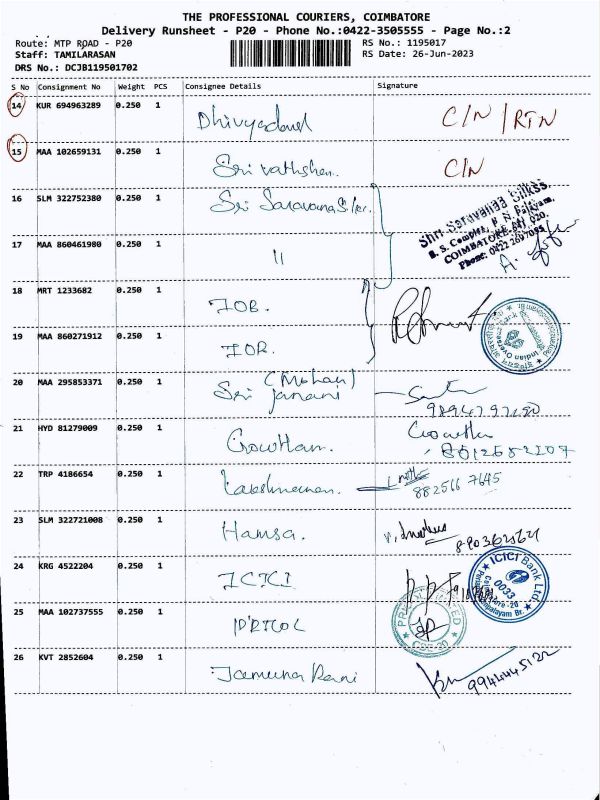 THE PROFESSIONAL COURIERS, COIMBATORE
Delivery Runsheet - P20 - Phone No.:0422-3505555 - Page No.:2
Route: MTP ROAD - P20 RS No.: 1195017
Staff: TAMILARASAN RS Date: 26-Jun-2023
DRS No.: DCJB119501702
S No Consignment No Weight PCS Consignee Details Signature
14 KUR 694963289 0.250 1 C/N / RTN
15 MAA 102659131 0.250 1 Sri vathshan. C/N
16 SLM 322752380 0.250 1 Sri Saravana Silks. Shri Saravanaa Silks.
COIMBATORE-641 020.
17 MAA 860461980 0.250 1 11
18 MRT 1233682 0.250 1 IOB.
19 MAA 860271912 0.250 1 IOB. Indian Overseas Bank
20 MAA 295853371 0.250 1 Sri (Mohan) Janani
21 HYD 81279009 0.250 1 Gowtham. Gowtham
22 TRP 4186654 0.250 1 Lakshmanan. 882566 7645
23 SLM 322721008 0.250 1 Hamsa.
24 KRG 4522204 0.250 1 ICICI ICICI Bank Ltd. 0033
25 MAA 102737555 0.250 1 PRICOL PRICOL LIMITED CBE-20
26 KVT 2852604 0.250 1 Jamuna Rani 9944445122